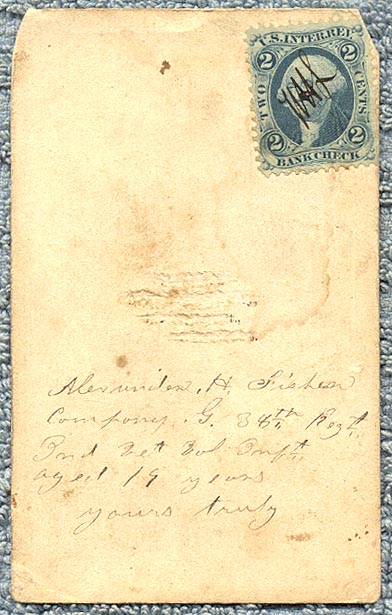 U.S. INTER. REV.
2 2
TWO CENTS
2 2
BANK CHECK
Alexander. H. Fisher
Company. G. 38th Regt.
Ind Vet Vol Inft.
aged 19 years
yours truly